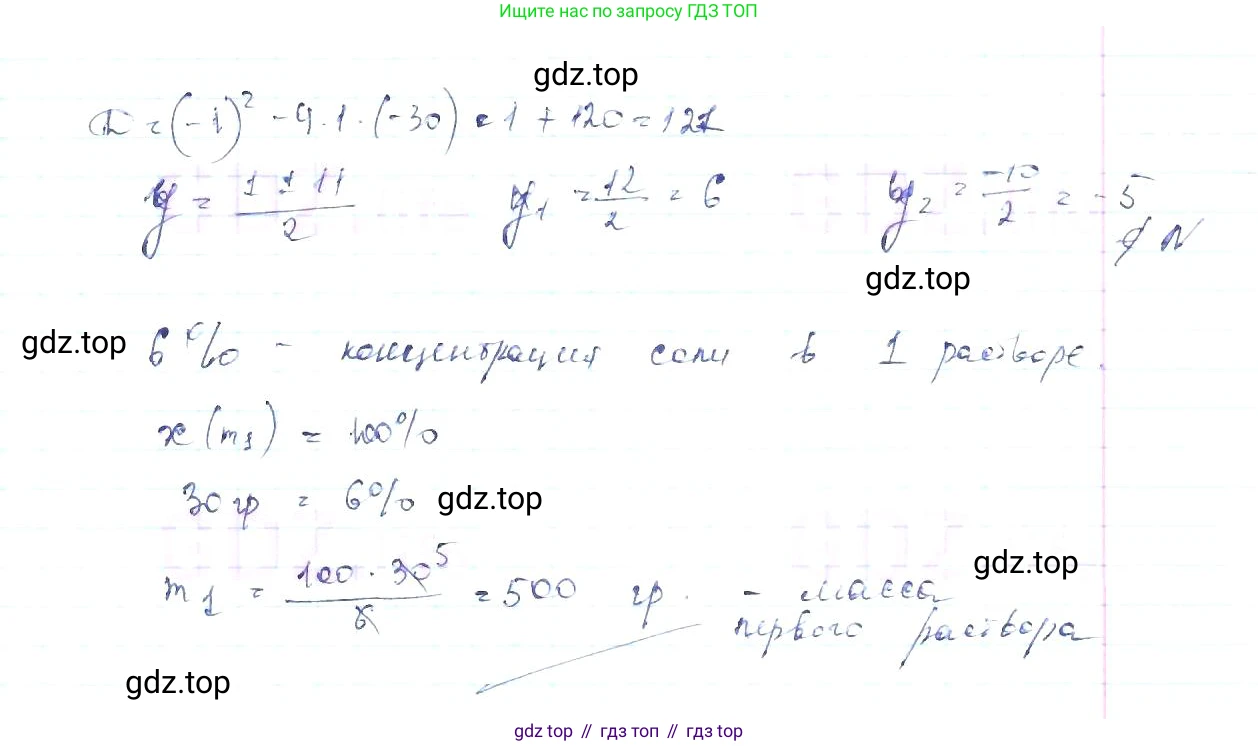 Ищите нас по запросу ГДЗ ТОП
gdz.top
D = (-1)² - 4·1·(-30) = 1 + 120 = 121
y = (1 ± 11)/2 y₁ = 12/2 = 6 y₂ = -10/2 = -5
∉ N
gdz.top
gdz.top 6% - концентрация соли в 1 растворе.
x (m₁) = 100%
30 гр = 6% gdz.top
gdz.top
m₁ = (100·30⁵)/6 = 500 гр. - масса
первого раствора
gdz.top
gdz.top // гдз топ // gdz.top